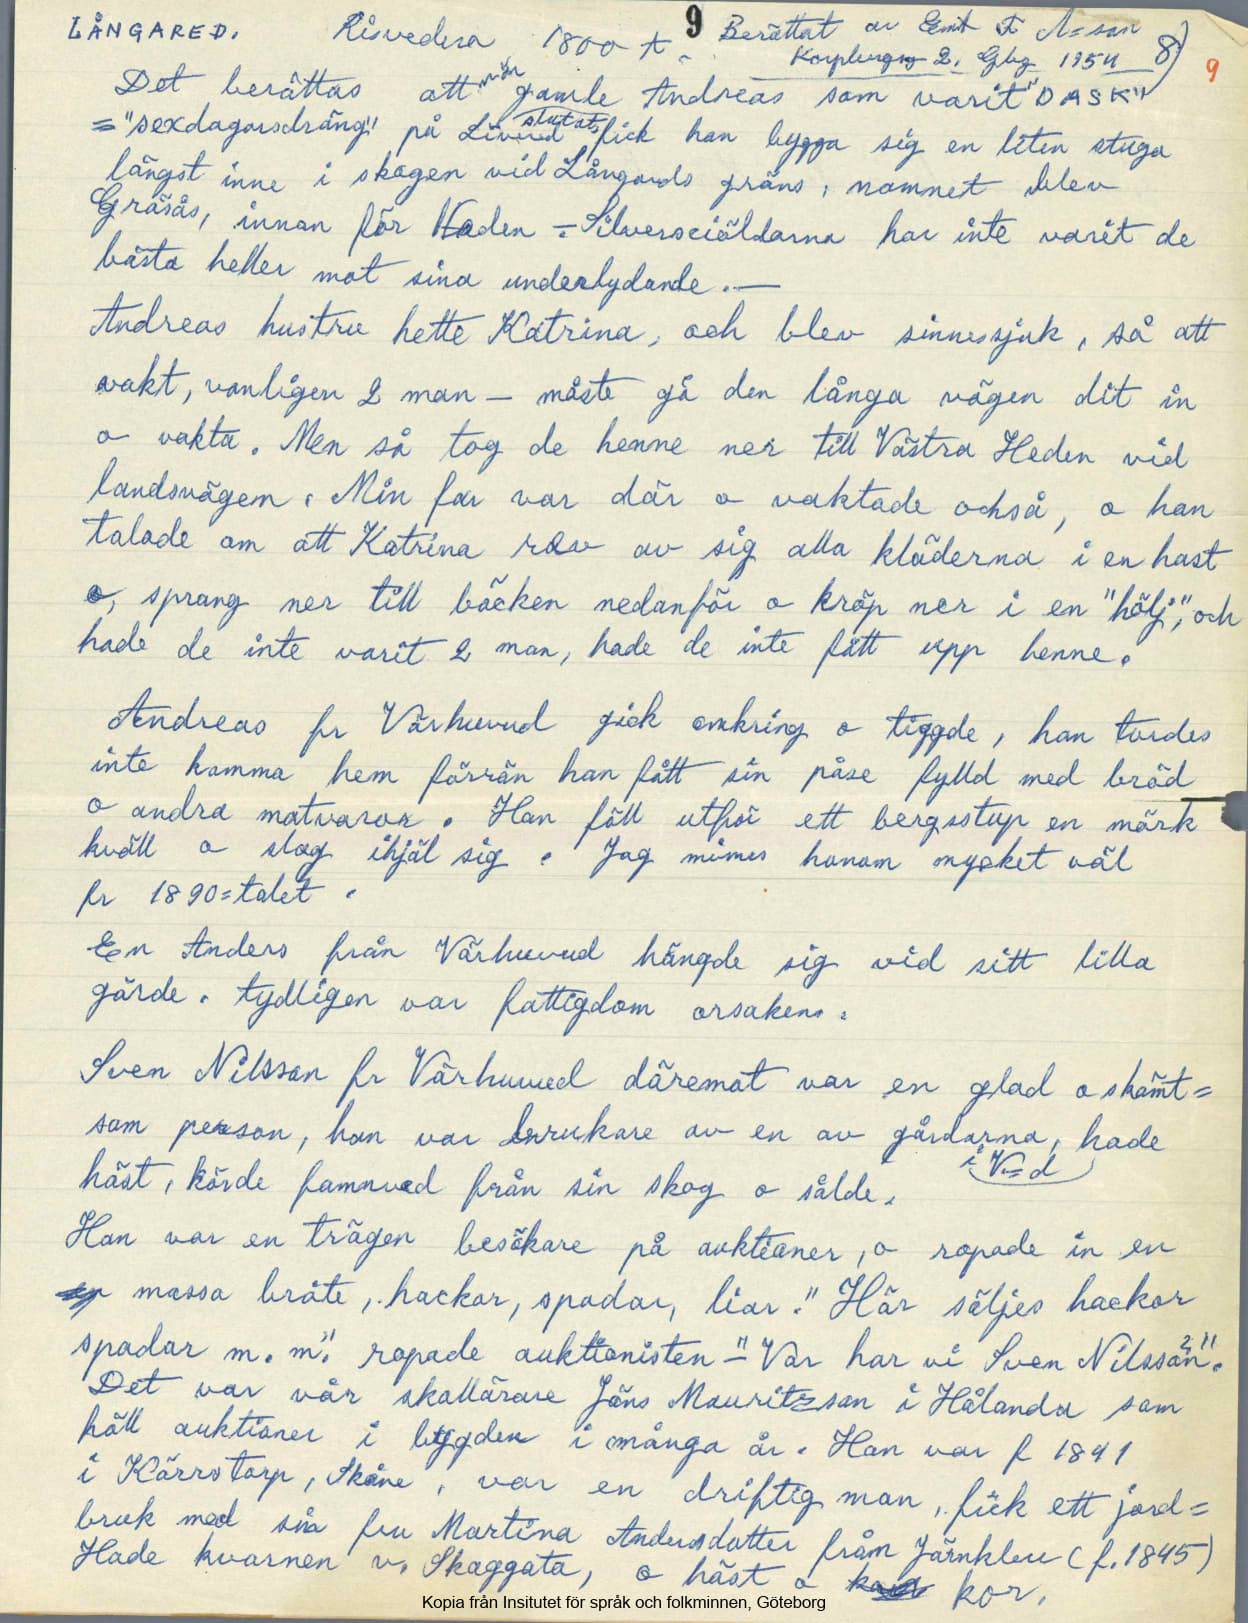 LÅNGARED. Risvedena 1800 t. 9 Berättat av Emil F N=son 8) 9
Korpberg 2. Gbg 1954
Det berättas att "när" gamle Andreas som varit "DASK"
="sexdagarsdräng" på slutat, fick han bygga sig en liten stuga
längst inne i skogen vid Långareds gräns, namnet blev
Gräsås, innan för Heden - Silversciöldarna har inte varit de
bästa heller mot sina underlydande. —
Andreas hustru hette Katrina, och blev sinnessjuk, så att
vakt, vanligen 2 man — måste gå den långa vägen dit in
o vakta. Men så tog de henne ner till Västra Heden vid
landsvägen. Min far var där o vaktade också, o han
talade om att Katrina rev av sig alla kläderna i en hast
o, sprang ner till bäcken nedanför o kröp ner i en "hölj", och
hade de inte varit 2 man, hade de inte fått upp henne.
Andreas fr Värhuvud gick omkring o tiggde, han tordes
inte komma hem förrän han fått sin påse fylld med bröd
o andra matvaror. Han föll utför ett bergsstup en mörk
kväll o slog ihjäl sig. Jag minnes honom mycket väl
fr 1890=talet.
En Anders från Värhuvud hängde sig vid sitt lilla
gärde. tydligen var fattigdom orsaken.
Sven Nilsson fr Värhuvud däremot var en glad o skämt=
sam person, han var brukare av en av gårdarna, hade
i V=d
häst, körde famnved från sin skog o sålde.
Han var en trägen besökare på auktioner, o ropade in en
massa bråte, hackor, spadar, liar. "Här säljes hackor
spadar m. m." ropade auktionisten — "Var har vi Sven Nilsson?".
Det var vår skollärare Jöns Mauritzson i Hålanda som
höll auktioner i bygden i många år. Han var f 1841
i Kärrstorp, Skåne, var en driftig man, fick ett jord=
bruk med sin fru Martina Andersdotter från Järnklev (f. 1845)
Hade kvarnen v. Skaggata, o häst o kor.
Kopia från Insitutet för språk och folkminnen, Göteborg